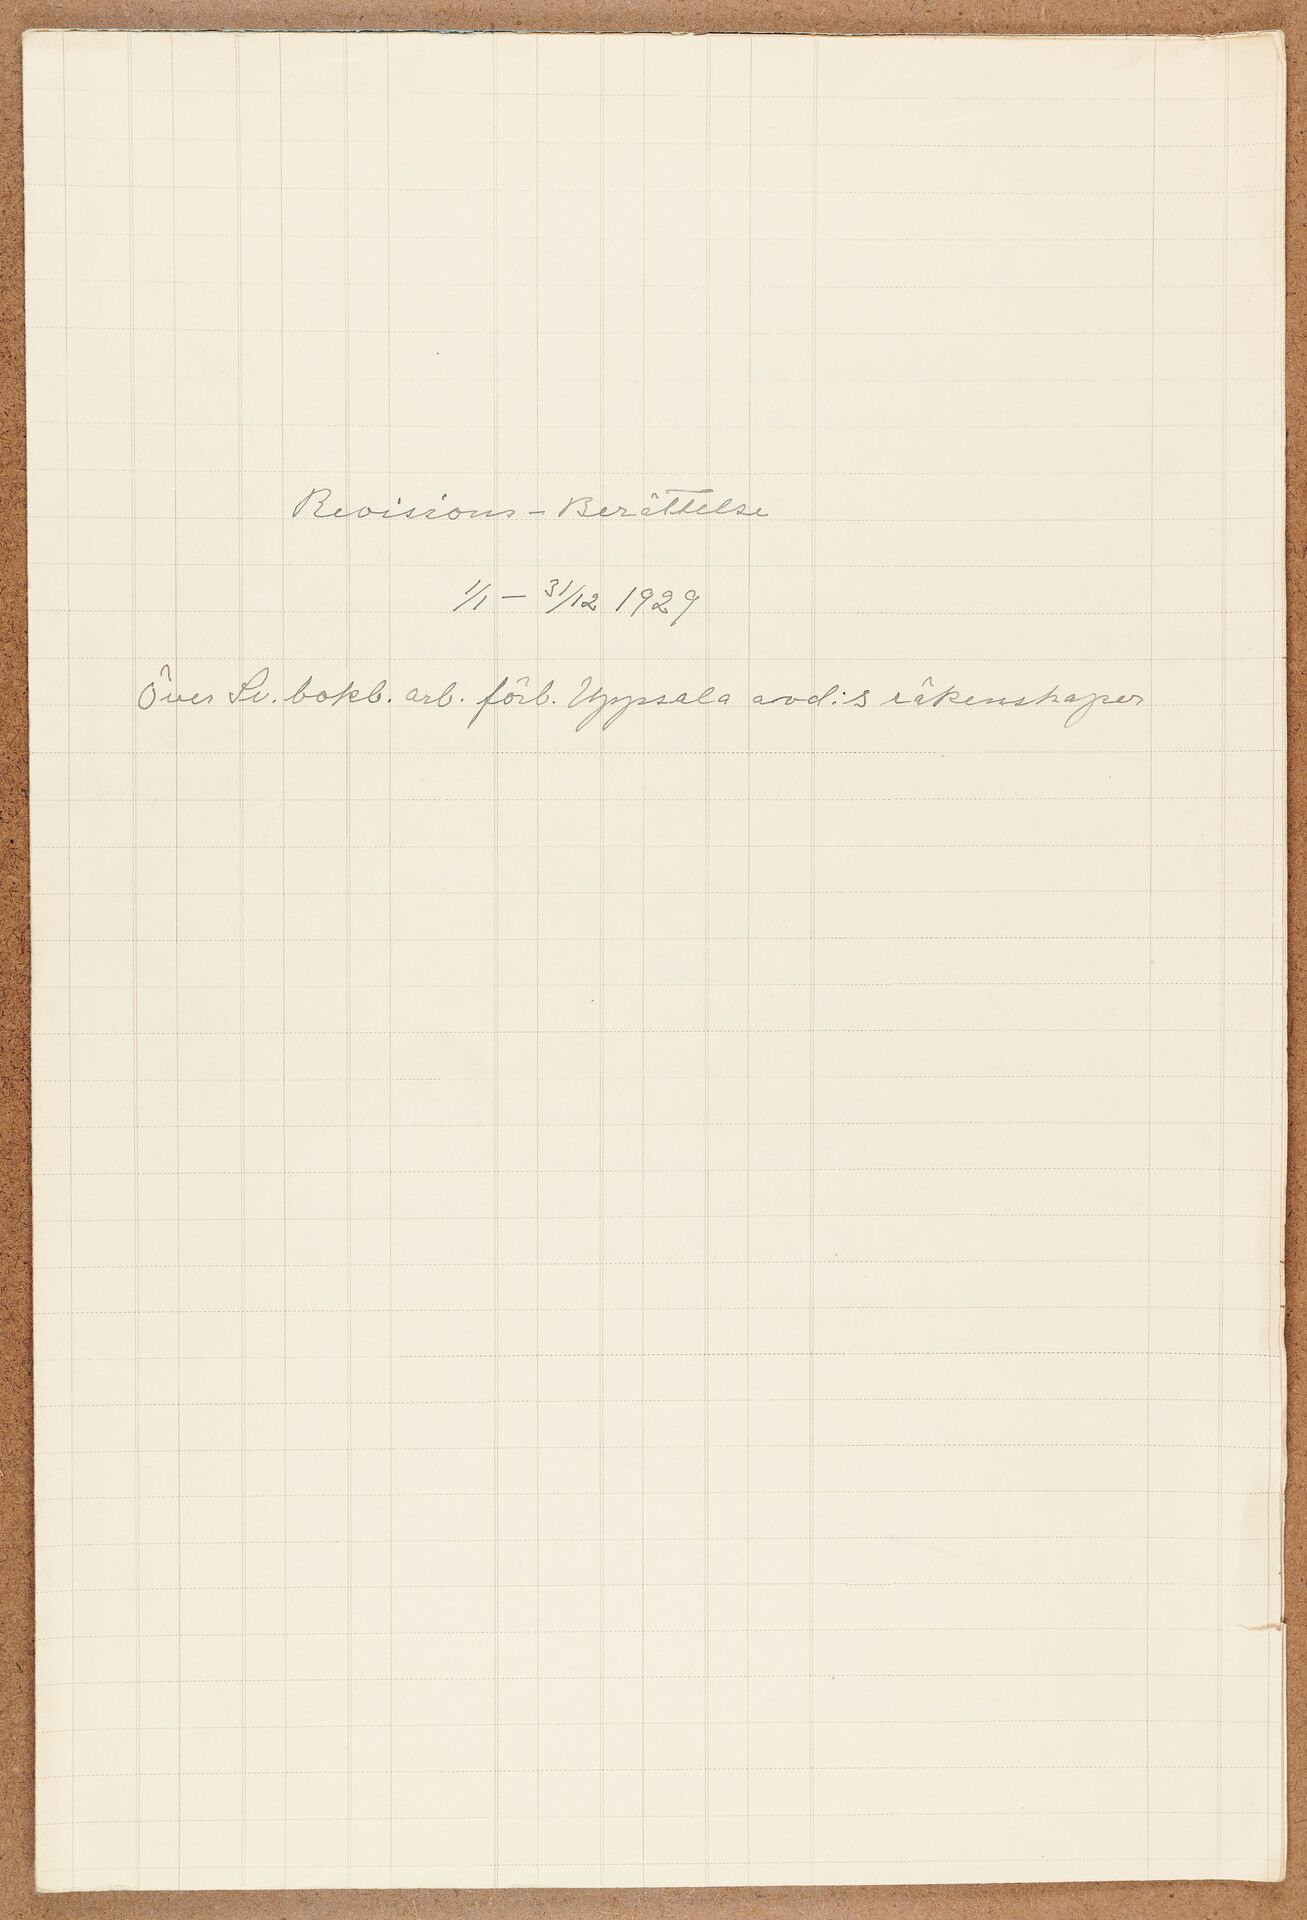 Revisions – Berättelse
1/1 – 31/12 1929
Över Sv. bokb. arb. förb. Uppsala avd:s räkenskaper